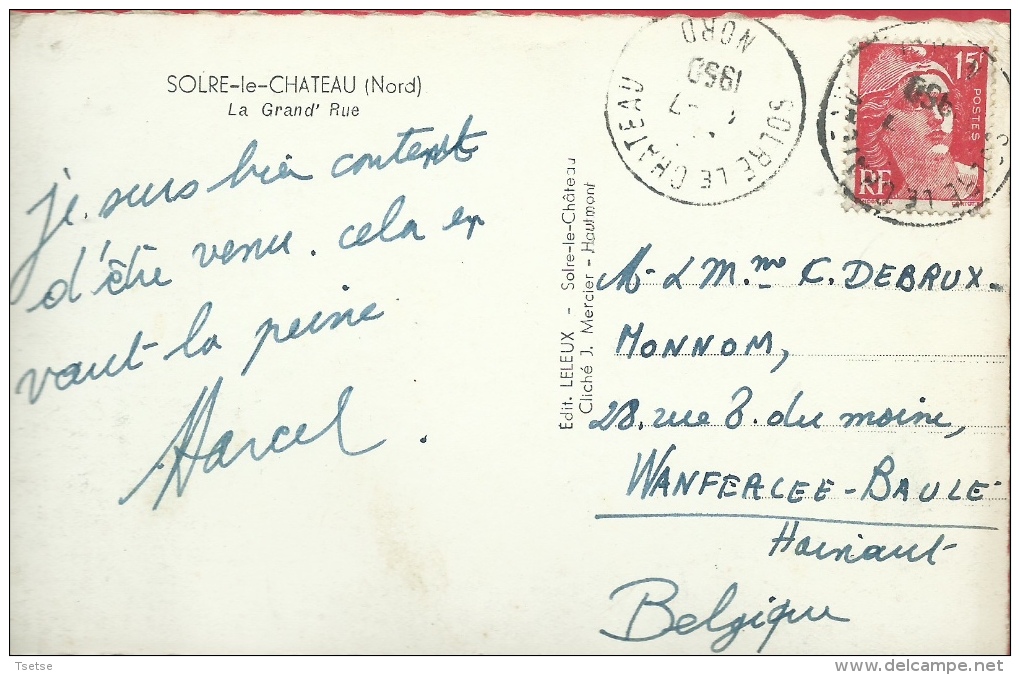 SOLRE-le-CHATEAU (Nord)
La Grand' Rue
je suis bien content
d'être venu. cela en
vaut la peine
Marcel.
Edit. LELEUX - Solre-le-Château
Cliché J. Mercier - Hautmont
SOLRE LE CHATEAU
1950
NORD
15F
POSTES
RF
M. & M.me C. DEBRUX-
MONNOM,
28. rue T. du moine,
WANFERCEE-BAULE
Hainaut
Belgique
Tsetse
delcampe.net